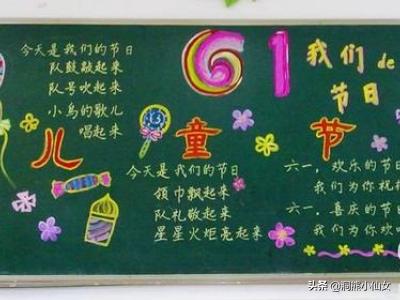 今天是我们的节日
队鼓敲起来
队号吹起来
小鸟的歌儿
唱起来
61
我们de
节日
儿童节
今天是我们的节日
领巾飘起来
队礼敬起来
星星火炬亮起来
六一，欢乐的节
我们为你祝
六一，喜庆的节
我们为你欢
头条 @洞熊小仙女